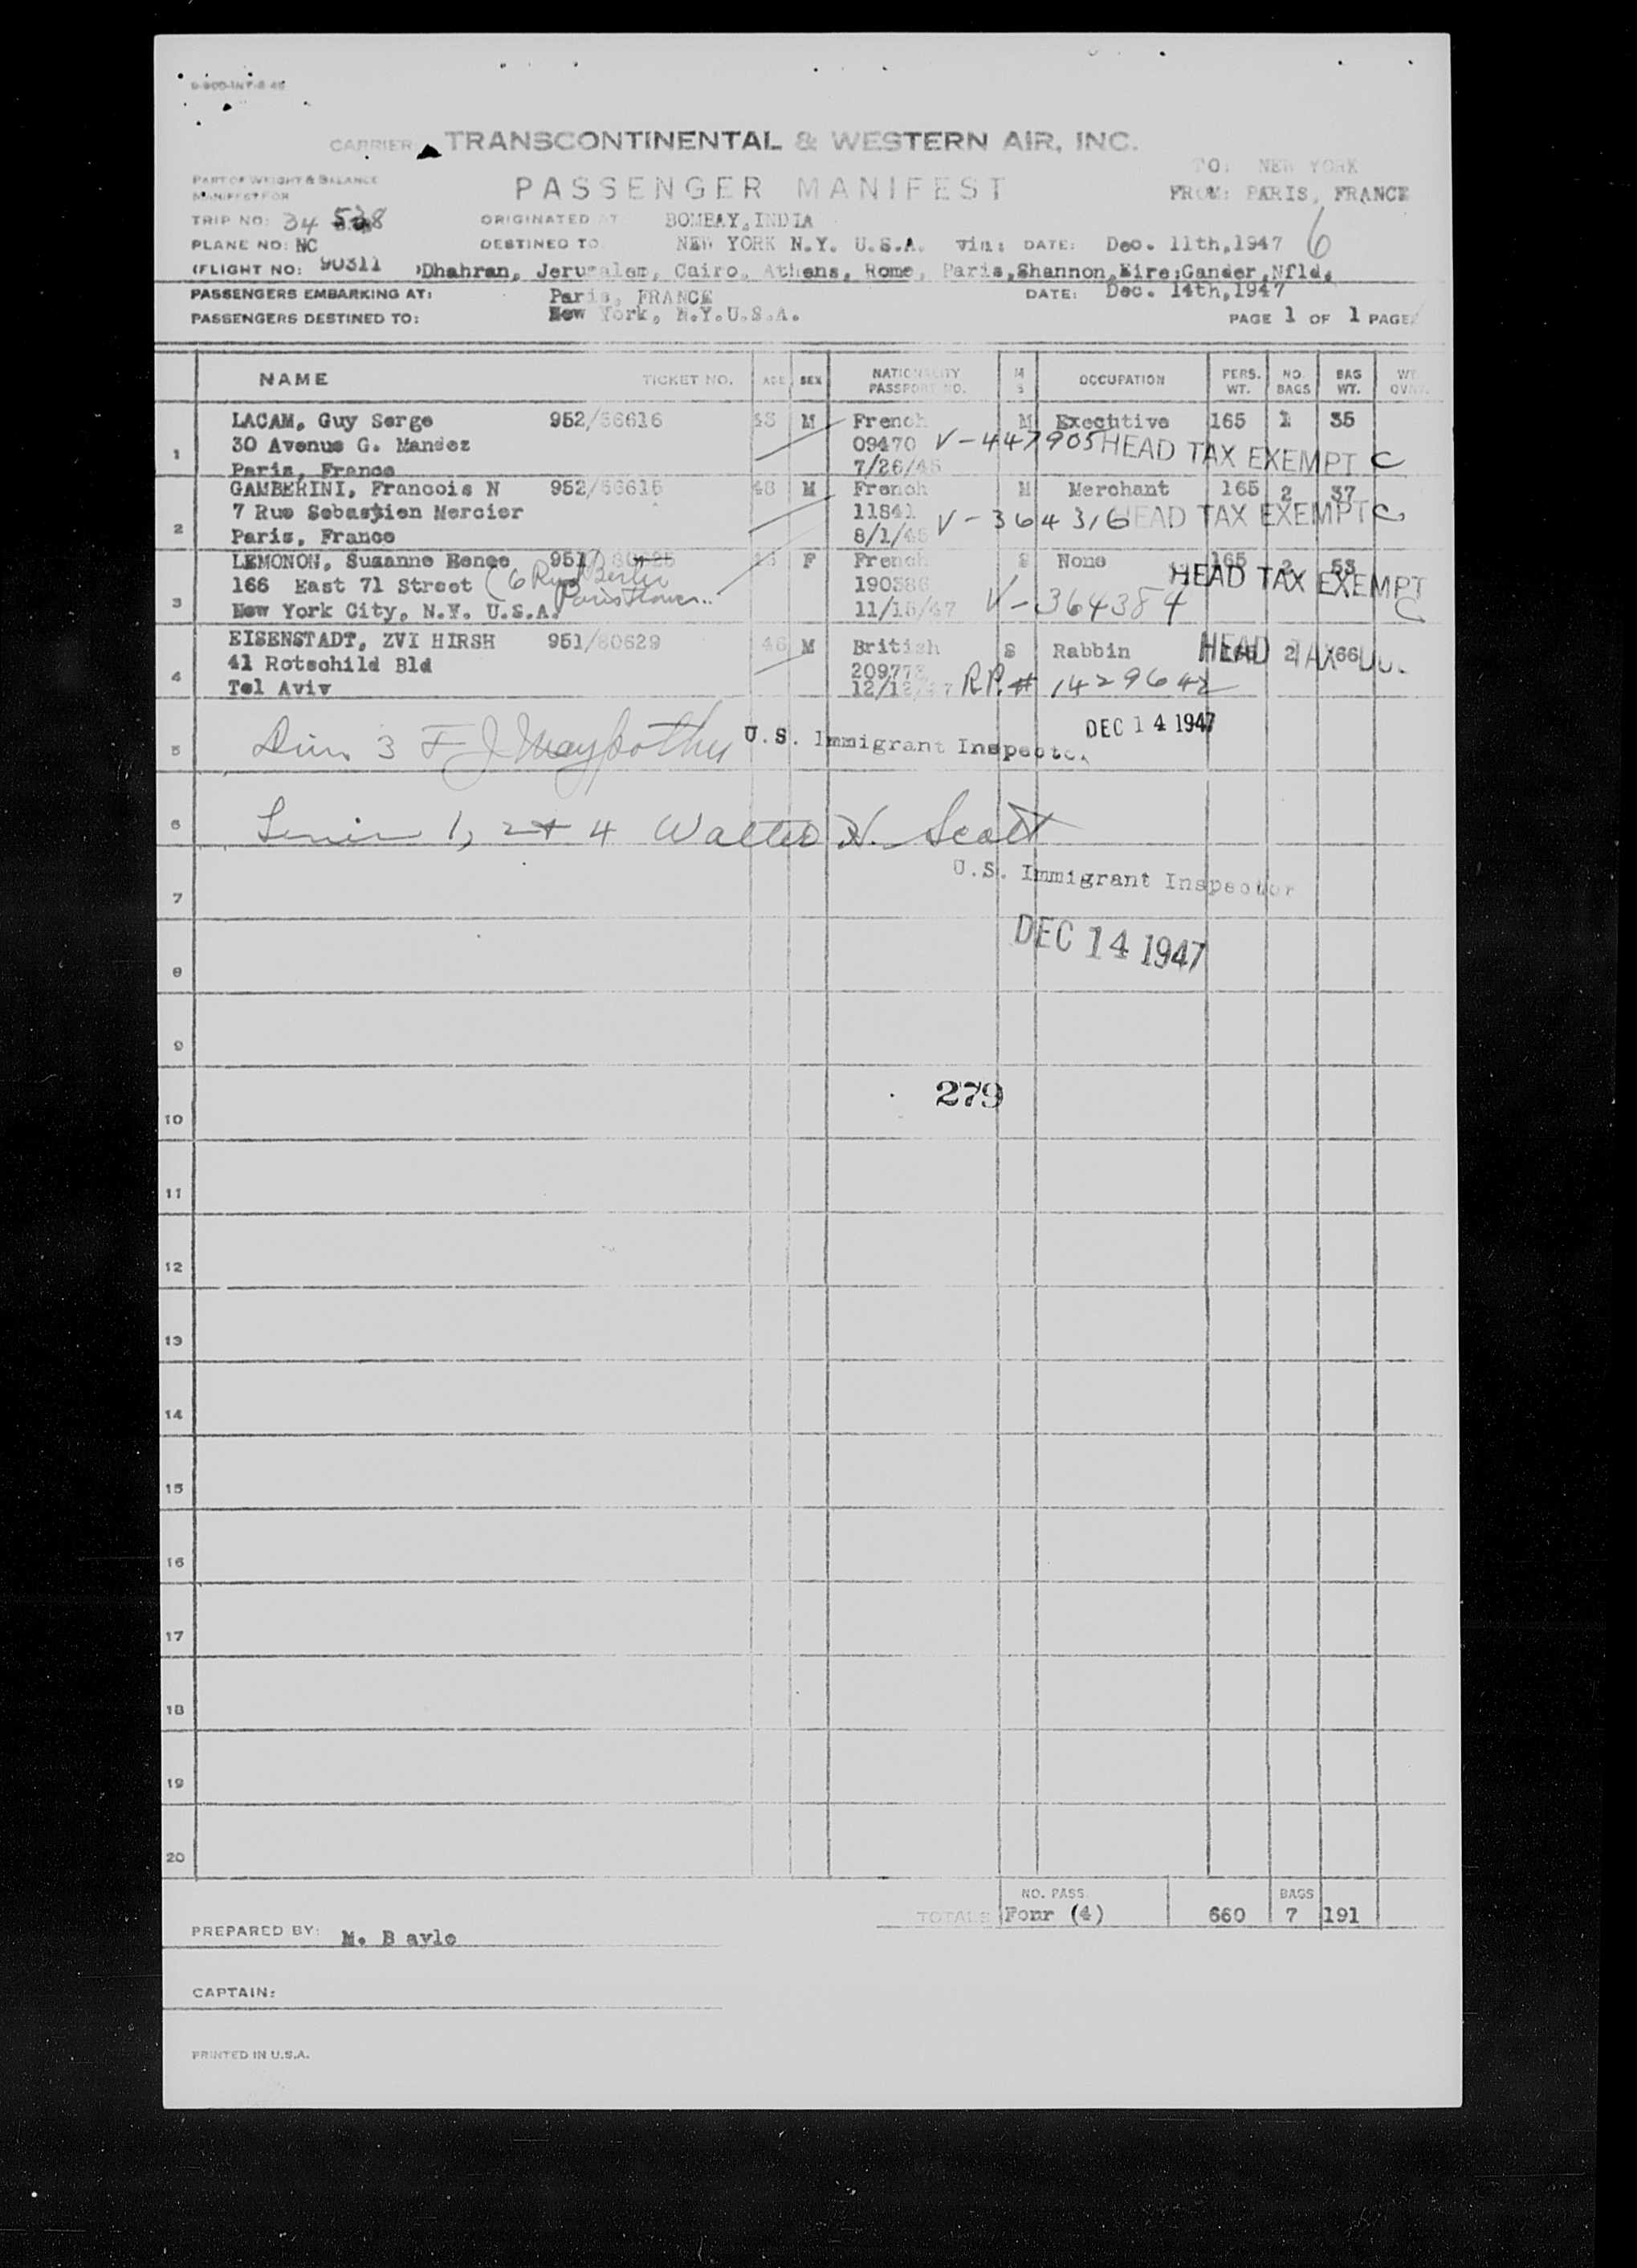 CARRIER TRANSCONTINENTAL & WESTERN AIR, INC.
TO: NEW YORK
PART OF WEIGHT & BALANCE
MANIFEST FOR
PASSENGER MANIFEST
FROM: PARIS, FRANCE
TRIP NO: 34 ORIGINATED AT BOMBAY, INDIA
PLANE NO: NC DESTINED TO NEW YORK N.Y. U.S.A. via: DATE: Dec. 11th,1947 6
(FLIGHT NO: 90311 )Dhahran, Jerusalem, Cairo, Athens, Rome, Paris,Shannon,Eire;Gander,Nfld.
PASSENGERS EMBARKING AT: Paris, FRANCE DATE: Dec. 14th,1947
PASSENGERS DESTINED TO: New York, N.Y.U.S.A. PAGE 1 OF 1 PAGE
NAME TICKET NO. AGE SEX NATIONALITY PASSPORT NO. M S OCCUPATION PERS. WT. NO. BAGS BAG WT.
LACAM, Guy Serge 952/56616 M French M Executive 165 35
30 Avenue G. Mandez 09470 V-447905 HEAD TAX EXEMPT C
1 Paris, France 7/26/45
GAMBERINI, Francois N 952/56615 48 M French M Merchant 165 2 37
7 Rue Sebastien Mercier 11841 V-364316 HEAD TAX EXEMPT C
2 Paris, France 8/1/45
LEMONON, Suzanne Renee 951/ F French S None 165 2 53
166 East 71 Street 190386 HEAD TAX EXEMPT
3 New York City, N.Y. U.S.A. 11/15/47 V-364384 C
EISENSTADT, ZVI HIRSH 951/80629 46 M British S Rabbin 2 66
41 Rotschild Bld HEAD TAX
4 Tel Aviv R.P. # 1429642
5 U.S. Immigrant Inspector DEC 14 1947
6 1, 2 + 4 Walter H. Scott
U.S. Immigrant Inspector
7
DEC 14 1947
8
9
279
10
11
12
13
14
15
16
17
18
19
20
NO. PASS. BAGS
TOTALS Fonr (4) 660 7 191
PREPARED BY: M. B ayle
CAPTAIN:
PRINTED IN U.S.A.